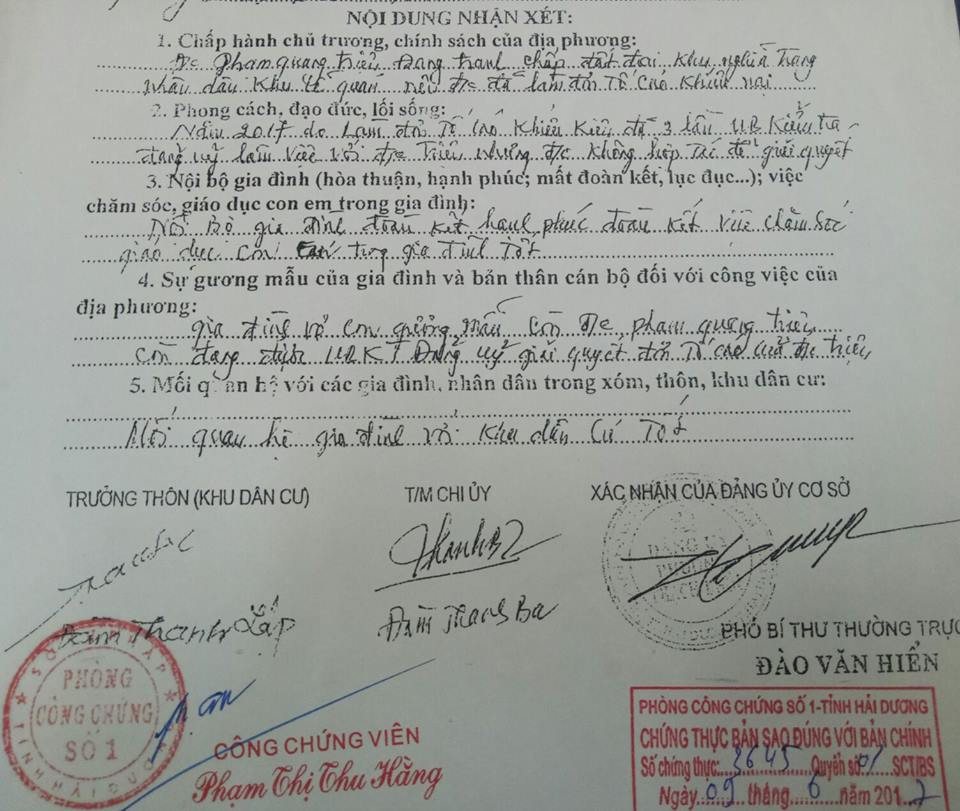 NỘI DUNG NHẬN XÉT:
1. Chấp hành chủ trương, chính sách của địa phương:
Đ/c Phạm quang triệu đang tranh chấp đất đai khu nghĩa trang
nhân dân khu tế quán nên đ/c đã làm đơn Tố cáo khiếu nại
2. Phong cách, đạo đức, lối sống:
Năm 2017 do Làm đơn Tố cáo khiếu kiện đã 3 lần UB kiểm tra
đảng uỷ làm việc với đ/c triệu nhưng đ/c không hợp tác để giải quyết
3. Nội bộ gia đình (hòa thuận, hạnh phúc; mất đoàn kết, lục đục...); việc
chăm sóc, giáo dục con em trong gia đình:
Nội Bộ gia đình đoàn kết hạnh phúc đoàn kết việc chăm sóc
giáo dục con cái trong gia đình Tốt
4. Sự gương mẫu của gia đình và bản thân cán bộ đối với công việc của
địa phương:
gia đình vợ con gương mẫu còn đ/c phạm quang triệu
còn đang được UBKT Đảng uỷ giải quyết đơn Tố cáo của đ/c triệu
5. Mối quan hệ với các gia đình, nhân dân trong xóm, thôn, khu dân cư:
Mối quan hệ gia đình với khu dân cư Tốt
TRƯỞNG THÔN (KHU DÂN CƯ) T/M CHI ỦY XÁC NHẬN CỦA ĐẢNG ỦY CƠ SỞ
ThanhBa
ĐẢNG ỦY
PHƯỜNG
Đàm Thanh Lấp Đàm Thanh Ba
PHÓ BÍ THƯ THƯỜNG TRỰC
ĐÀO VĂN HIỂN
SỞ TƯ PHÁP
TỈNH HẢI DƯƠNG
PHÒNG
CÔNG CHỨNG
SỐ 1
CÔNG CHỨNG VIÊN
Phạm Thị Thu Hằng
PHÒNG CÔNG CHỨNG SỐ 1-TỈNH HẢI DƯƠNG
CHỨNG THỰC BẢN SAO ĐÚNG VỚI BẢN CHÍNH
Số chứng thực: 3645 Quyển số 01 SCT/BS
Ngày 09 tháng 6 năm 2017